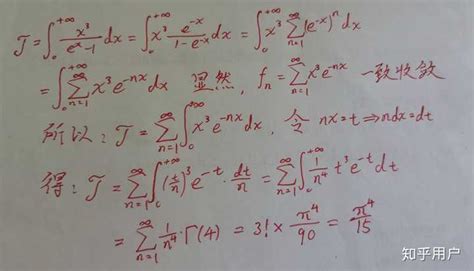 J = ∫₀^{+∞} x³/(eˣ-1) dx = ∫₀^{+∞} x³ e⁻ˣ/(1-e⁻ˣ) dx = ∫₀^{+∞} x³ ∑_{n=1}^{∞} (e⁻ˣ)ⁿ dx
= ∫₀^{+∞} ∑_{n=1}^{∞} x³ e^{-nx} dx 显然, fₙ = ∑_{n=1}^{∞} x³ e^{-nx} 一致收敛
所以: J = ∑_{n=1}^{∞} ∫₀^{+∞} x³ e^{-nx} dx, 令 nx = t ⇒ ndx = dt
得: J = ∑_{n=1}^{∞} ∫₀^{+∞} (t/n)³ e^{-t} · dt/n = ∑_{n=1}^{∞} ∫₀^{+∞} 1/n⁴ t³ e^{-t} dt
= ∑_{n=1}^{∞} 1/n⁴ · Γ(4) = 3! × π⁴/90 = π⁴/15
知乎用户